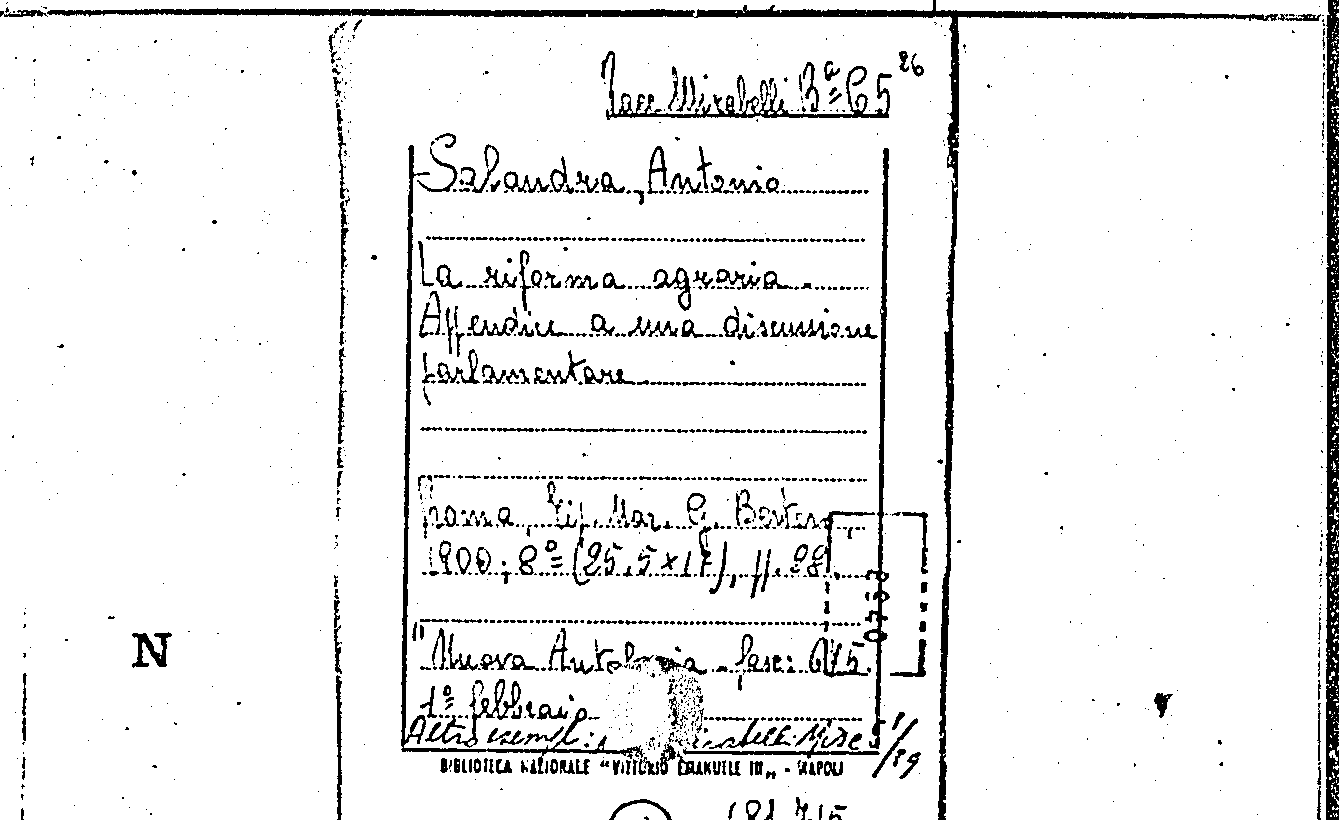 Race Mirabelli Bª C 5 26
Salandra, Antonio
La riforma agraria.
Appendice a una discussione
parlamentare
Roma, Tip. Mar. G. Bertero,
1900; 8º (25,5×17), pp. 28.
"Nuova Antologia - fasc: 675.
1º febbraio
Altro esempl: Mirabelli Misc 51/39
BIBLIOTECA NAZIONALE "VITTORIO EMANUELE III„ - NAPOLI
N